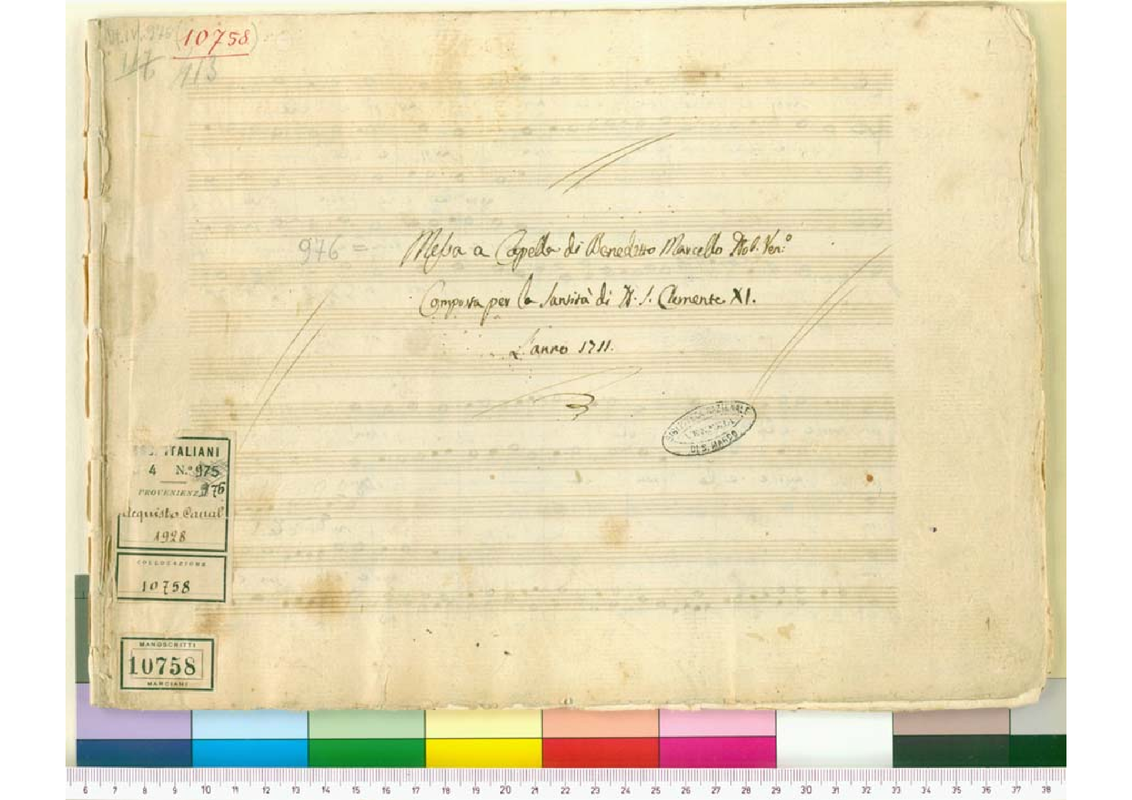 It. IV. 975 (10758)
117 113
976 = Messa a Capella di Benedetto Marcello Nob. Ven.º
Composta per la Santità di N. S. Clemente XI.
L'anno 1711.
BIBLIOTECA NAZIONALE
DI S. MARCO
ITALIANI
4 N.º 975
976
PROVENIENZA
Acquisto Canal
1928
COLLOCAZIONE
10758
MANOSCRITTI
10758
MARCIANI
6 7 8 9 10 11 12 13 14 15 16 17 18 19 20 21 22 23 24 25 26 27 28 29 30 31 32 33 34 35 36 37 38